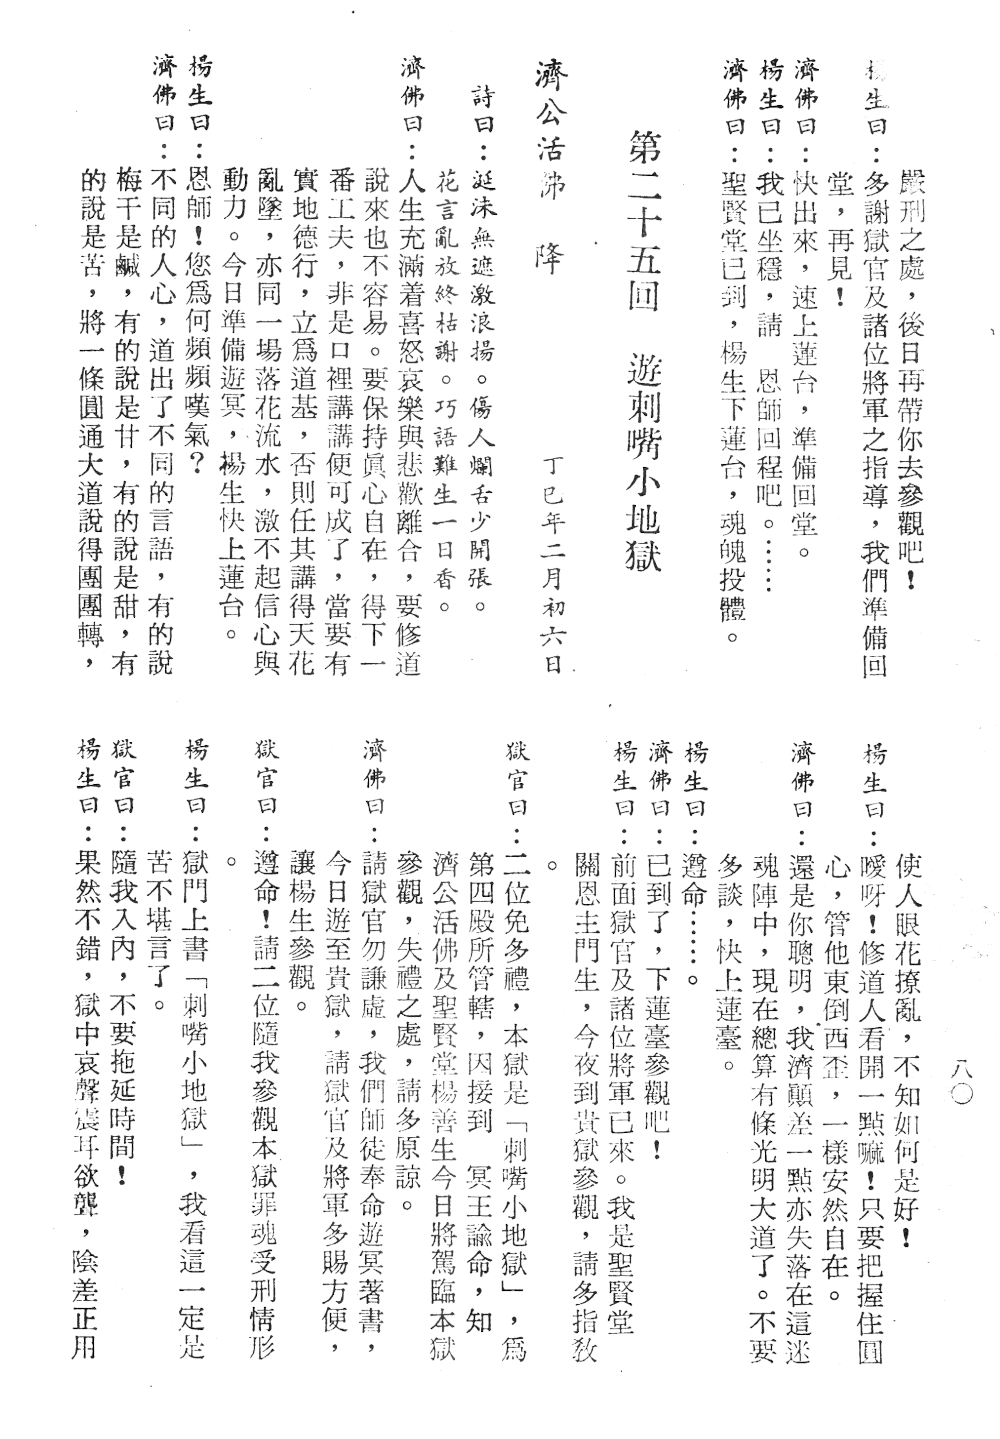 嚴刑之處，後日再帶你去參觀吧！
楊生曰：多謝獄官及諸位將軍之指導，我們準備回
堂，再見！
濟佛曰：快出來，速上蓮台，準備回堂。
楊生曰：我已坐穩，請　恩師回程吧。……
濟佛曰：聖賢堂已到，楊生下蓮台，魂魄投體。
第二十五回　遊刺嘴小地獄
濟公活佛　降　　丁巳年二月初六日
詩曰：涎沫無遮激浪揚。傷人爛舌少開張。
花言亂放終枯謝。巧語難生一日香。
濟佛曰：人生充滿着喜怒哀樂與悲歡離合，要修道
說來也不容易。要保持眞心自在，得下一
番工夫，非是口裡講講便可成了，當要有
實地德行，立爲道基，否則任其講得天花
亂墜，亦同一場落花流水，激不起信心與
動力。今日準備遊冥，楊生快上蓮台。
楊生曰：恩師！您爲何頻頻嘆氣？
濟佛曰：不同的人心，道出了不同的言語，有的說
梅干是鹹，有的說是甘，有的說是甜，有
的說是苦，將一條圓通大道說得團團轉，
使人眼花撩亂，不知如何是好！
楊生曰：噯呀！修道人看開一點嘛！只要把握住圓
心，管他東倒西歪，一樣安然自在。
濟佛曰：還是你聰明，我濟顚差一點亦失落在這迷
魂陣中，現在總算有條光明大道了。不要
多談，快上蓮臺。
楊生曰：遵命……。
濟佛曰：已到了，下蓮臺參觀吧！
楊生曰：前面獄官及諸位將軍已來。我是聖賢堂
關恩主門生，今夜到貴獄參觀，請多指敎
。
獄官曰：二位免多禮，本獄是「刺嘴小地獄」，爲
第四殿所管轄，因接到　冥王諭命，知
濟公活佛及聖賢堂楊善生今日將駕臨本獄
參觀，失禮之處，請多原諒。
濟佛曰：請獄官勿謙虛，我們師徒奉命遊冥著書，
今日遊至貴獄，請獄官及將軍多賜方便，
讓楊生參觀。
獄官曰：遵命！請二位隨我參觀本獄罪魂受刑情形
。
楊生曰：獄門上書「刺嘴小地獄」，我看這一定是
苦不堪言了。
獄官曰：隨我入內，不要拖延時間！
楊生曰：果然不錯，獄中哀聲震耳欲聾，陰差正用
八〇